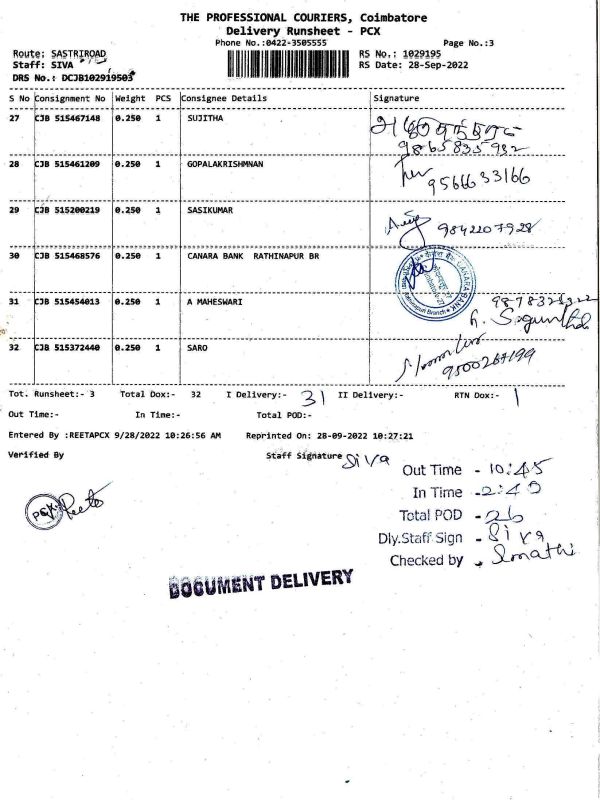 THE PROFESSIONAL COURIERS, Coimbatore
Delivery Runsheet - PCX
Phone No.:0422-3505555 Page No.:3
Route: SASTRIROAD RS No.: 1029195
Staff: SIVA RS Date: 28-Sep-2022
DRS No.: DCJB102919503
S No Consignment No Weight PCS Consignee Details Signature
27 CJB 515467148 0.250 1 SUJITHA
9865835932
28 CJB 515461209 0.250 1 GOPALAKRISHMNAN
9566633166
29 CJB 515200219 0.250 1 SASIKUMAR
9842207928
30 CJB 515468576 0.250 1 CANARA BANK RATHINAPUR BR
CANARA BANK
31 CJB 515454013 0.250 1 A MAHESWARI
32 CJB 515372440 0.250 1 SARO
Tot. Runsheet:- 3 Total Dox:- 32 I Delivery:- 31 II Delivery:- RTN Dox:- 1
Out Time:- In Time:- Total POD:-
Entered By :REETAPCX 9/28/2022 10:26:56 AM Reprinted On: 28-09-2022 10:27:21
Verified By Staff Signature Siva
Out Time - 10:45
In Time - 2:40
Total POD - 26
Dly.Staff Sign - Siva
Checked by -
PCX Reeta
DOCUMENT DELIVERY